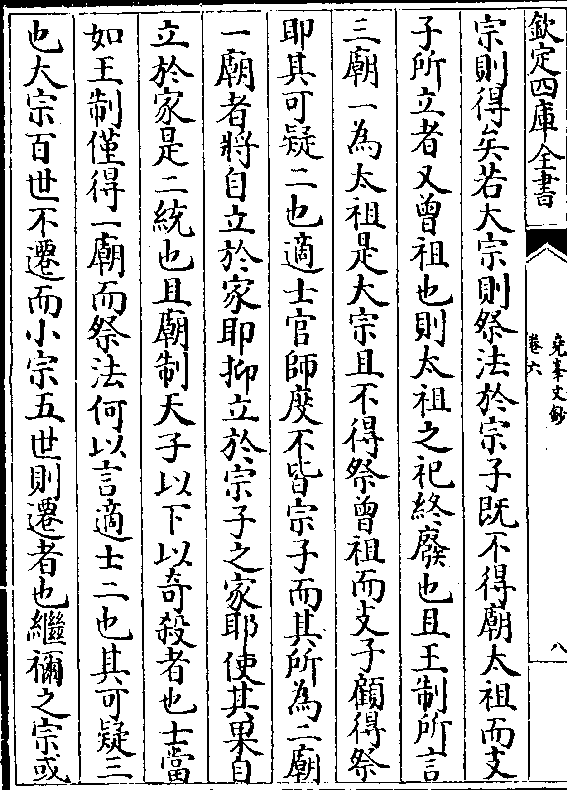 欽定四庫全書
堯峯文鈔
卷六
八
宗則得矣若大宗則祭法於宗子既不得廟太祖而支
子所立者又曾祖也則太祖之祀終廢也且王制所言
三廟一為太祖是大宗且不得祭曾祖而支子顧得祭
耶其可疑二也適士官師度不皆宗子而其所為二廟
一廟者將自立於家耶抑立於宗子之家耶使其果自
立於家是二統也且廟制天子以下以奇殺者也士當
如王制僅得一廟而祭法何以言適士二也其可疑三
也大宗百世不遷而小宗五世則遷者也繼禰之宗或